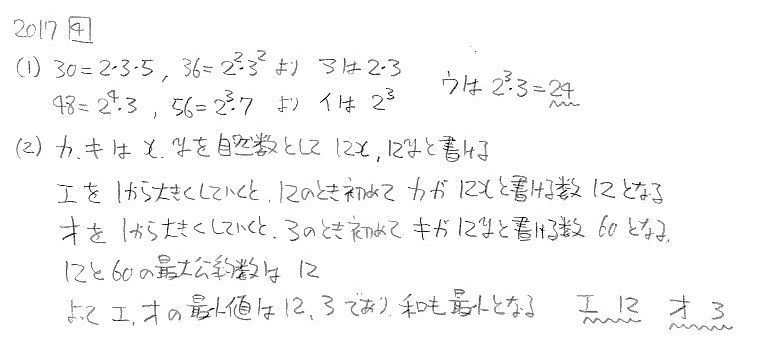 2017 4
(1) 30=2・3・5, 36=2²・3² より アは 2・3
48=2⁴・3, 56=2³・7 より イは 2³ ウは 2³・3=24
(2) カ,キは x,yを自然数として 12x, 12yと書ける
エを 1から大きくしていくと, 12のとき初めて カが 12xと書ける数 12となる
オを 1から大きくしていくと, 3のとき初めて キが 12yと書ける数 60となる.
12と60の最大公約数は 12
よって エ,オの最小値は 12, 3であり 和も最小となる エ 12 オ 3